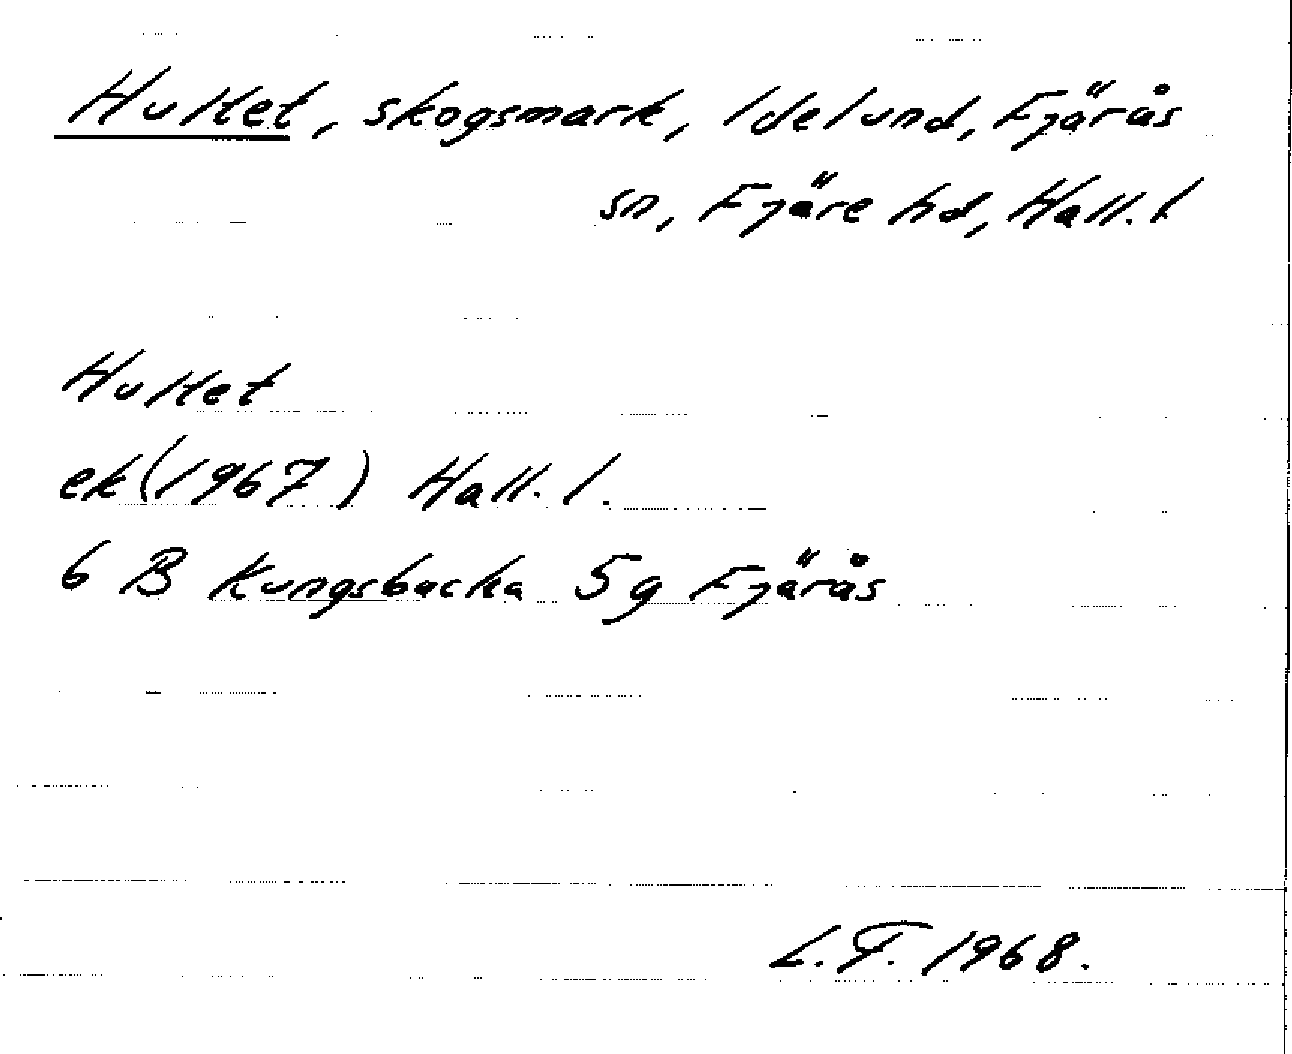 Hultet, skogsmark, Idelund, Fjärås
sn, Fjäre hd, Hall. l
Hultet
ek (1967) Hall. l.
6 B Kungsbacka 5g Fjärås
L.F. 1968.